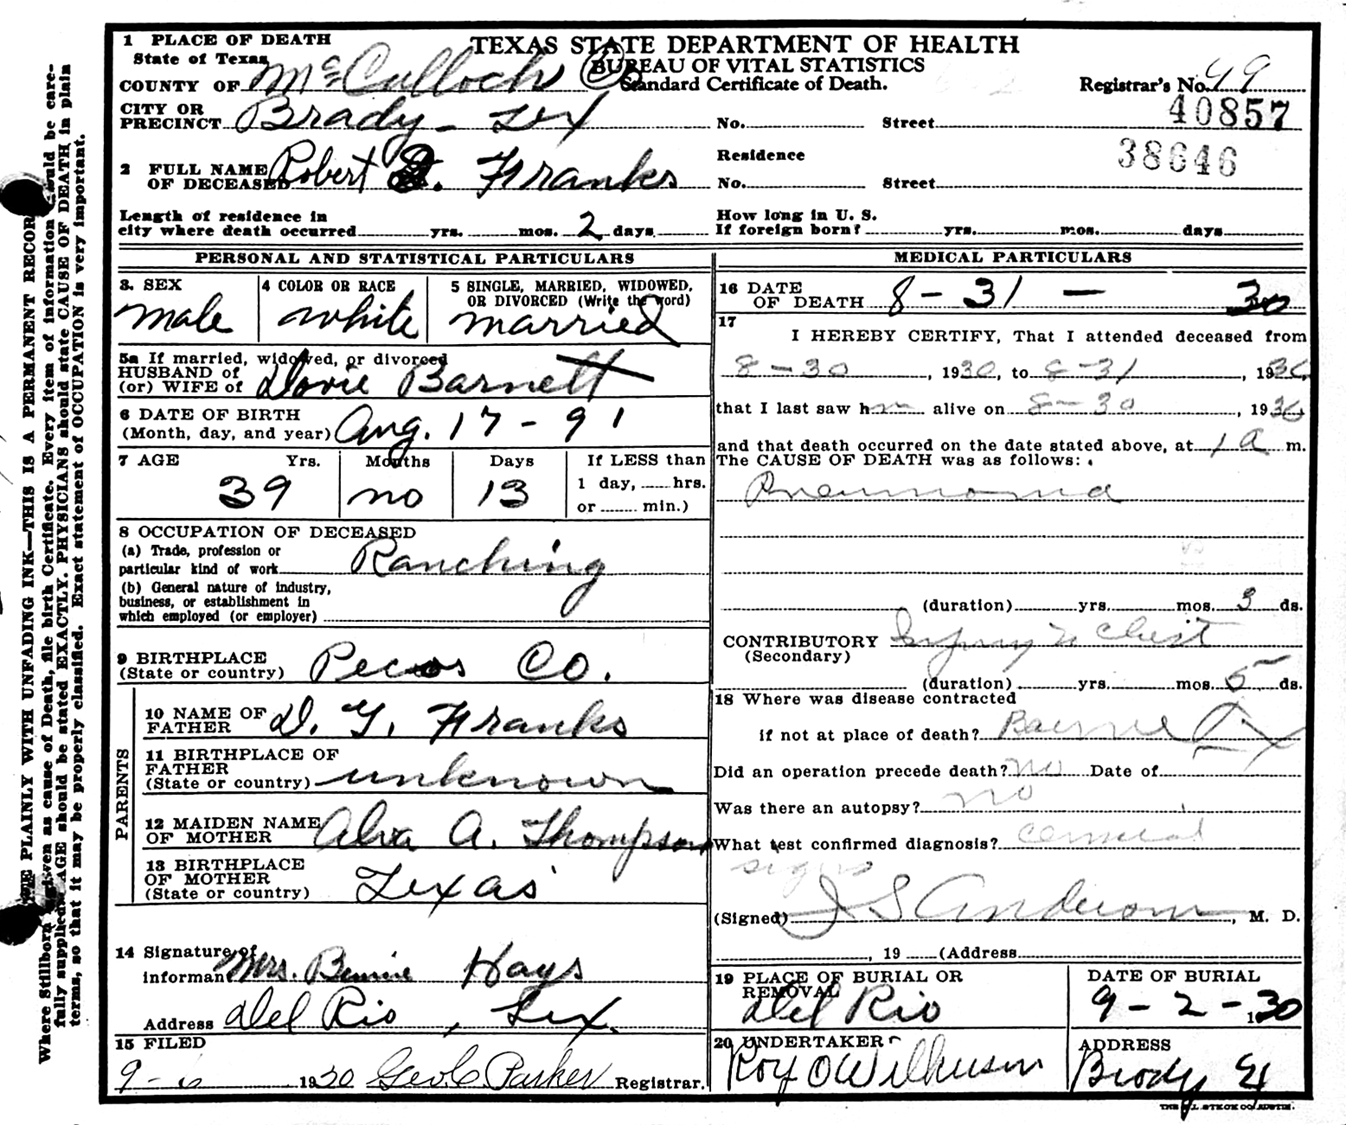 WRITE PLAINLY WITH UNFADING INK—THIS IS A PERMANENT RECORD
Where Stillborn is given as cause of Death, file birth Certificate. Every item of information should be care-
fully supplied. AGE should be stated EXACTLY. PHYSICIANS should state CAUSE OF DEATH in plain
terms, so that it may be properly classified. Exact statement of OCCUPATION is very important.
TEXAS STATE DEPARTMENT OF HEALTH
BUREAU OF VITAL STATISTICS
Standard Certificate of Death.
1 PLACE OF DEATH
State of Texas
COUNTY OF McCulloch
Registrar's No. 49
40857
CITY OR
PRECINCT Brady - Tex No. Street
38646
2 FULL NAME
OF DECEASED Robert . Franks
Residence
No. Street
Length of residence in
city where death occurred yrs. mos. 2 days
How long in U. S.
If foreign born? yrs. mos. days
PERSONAL AND STATISTICAL PARTICULARS
3. SEX
male
4 COLOR OR RACE
white
5 SINGLE, MARRIED, WIDOWED,
OR DIVORCED (Write the word)
married
5a If married, widowed, or divorced
HUSBAND OF
(or) WIFE of Dovie Barnett
6 DATE OF BIRTH
(Month, day, and year) Aug. 17 - 91
7 AGE Yrs. Months Days If LESS than
39 no 13 1 day, hrs.
or min.)
8 OCCUPATION OF DECEASED
(a) Trade, profession or
particular kind of work Ranching
(b) General nature of industry,
business, or establishment in
which employed (or employer)
9 BIRTHPLACE
(State or country) Pecos Co.
PARENTS
10 NAME OF
FATHER D. Y. Franks
11 BIRTHPLACE OF
FATHER
(State or country) unknown
12 MAIDEN NAME
OF MOTHER Alva A. Thompson
13 BIRTHPLACE
OF MOTHER
(State or country) Texas
14 Signature of
informant Mrs. Hays
Address Del Rio, Tex.
15 FILED
9-6 1930 Geo C Parker Registrar.
MEDICAL PARTICULARS
16 DATE
OF DEATH 8-31-30
17
I HEREBY CERTIFY, That I attended deceased from
8-30, 1930, to 8-31, 1930,
that I last saw him alive on 8-30, 1930
and that death occurred on the date stated above, at 1 a m.
The CAUSE OF DEATH was as follows:
Pneumonia
(duration) yrs. mos. 3 ds.
CONTRIBUTORY Injury to Chest
(Secondary)
(duration) yrs. mos. 5 ds.
18 Where was disease contracted
if not at place of death?
Did an operation precede death? no Date of
Was there an autopsy? no
What test confirmed diagnosis?
signs
(Signed) J S Anderson, M. D.
, 19 (Address
19 PLACE OF BURIAL OR
REMOVAL
Del Rio
DATE OF BURIAL
9-2-30
20 UNDERTAKER
Roy O Wilkerson
ADDRESS
Brady Tex